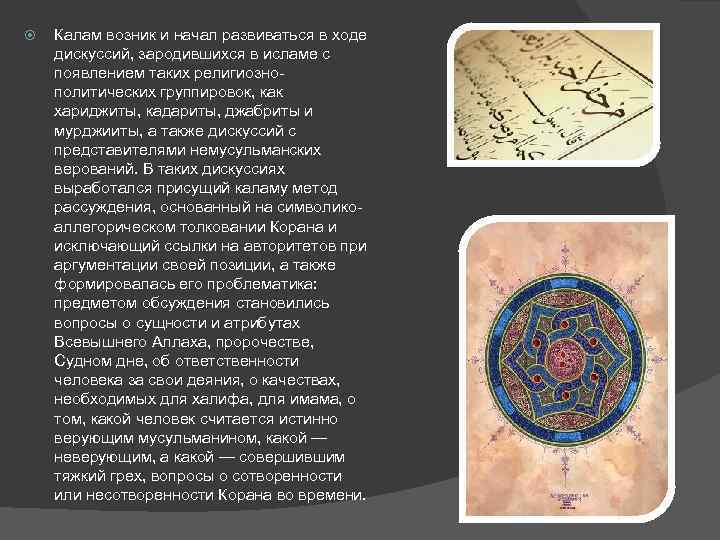 Калам возник и начал развиваться в ходе
дискуссий, зародившихся в исламе с
появлением таких религиозно-
политических группировок, как
хариджиты, кадариты, джабриты и
мурджииты, а также дискуссий с
представителями немусульманских
верований. В таких дискуссиях
выработался присущий каламу метод
рассуждения, основанный на символико-
аллегорическом толковании Корана и
исключающий ссылки на авторитетов при
аргументации своей позиции, а также
формировалась его проблематика:
предметом обсуждения становились
вопросы о сущности и атрибутах
Всевышнего Аллаха, пророчестве,
Судном дне, об ответственности
человека за свои деяния, о качествах,
необходимых для халифа, для имама, о
том, какой человек считается истинно
верующим мусульманином, какой —
неверующим, а какой — совершившим
тяжкий грех, вопросы о сотворенности
или несотворенности Корана во времени.